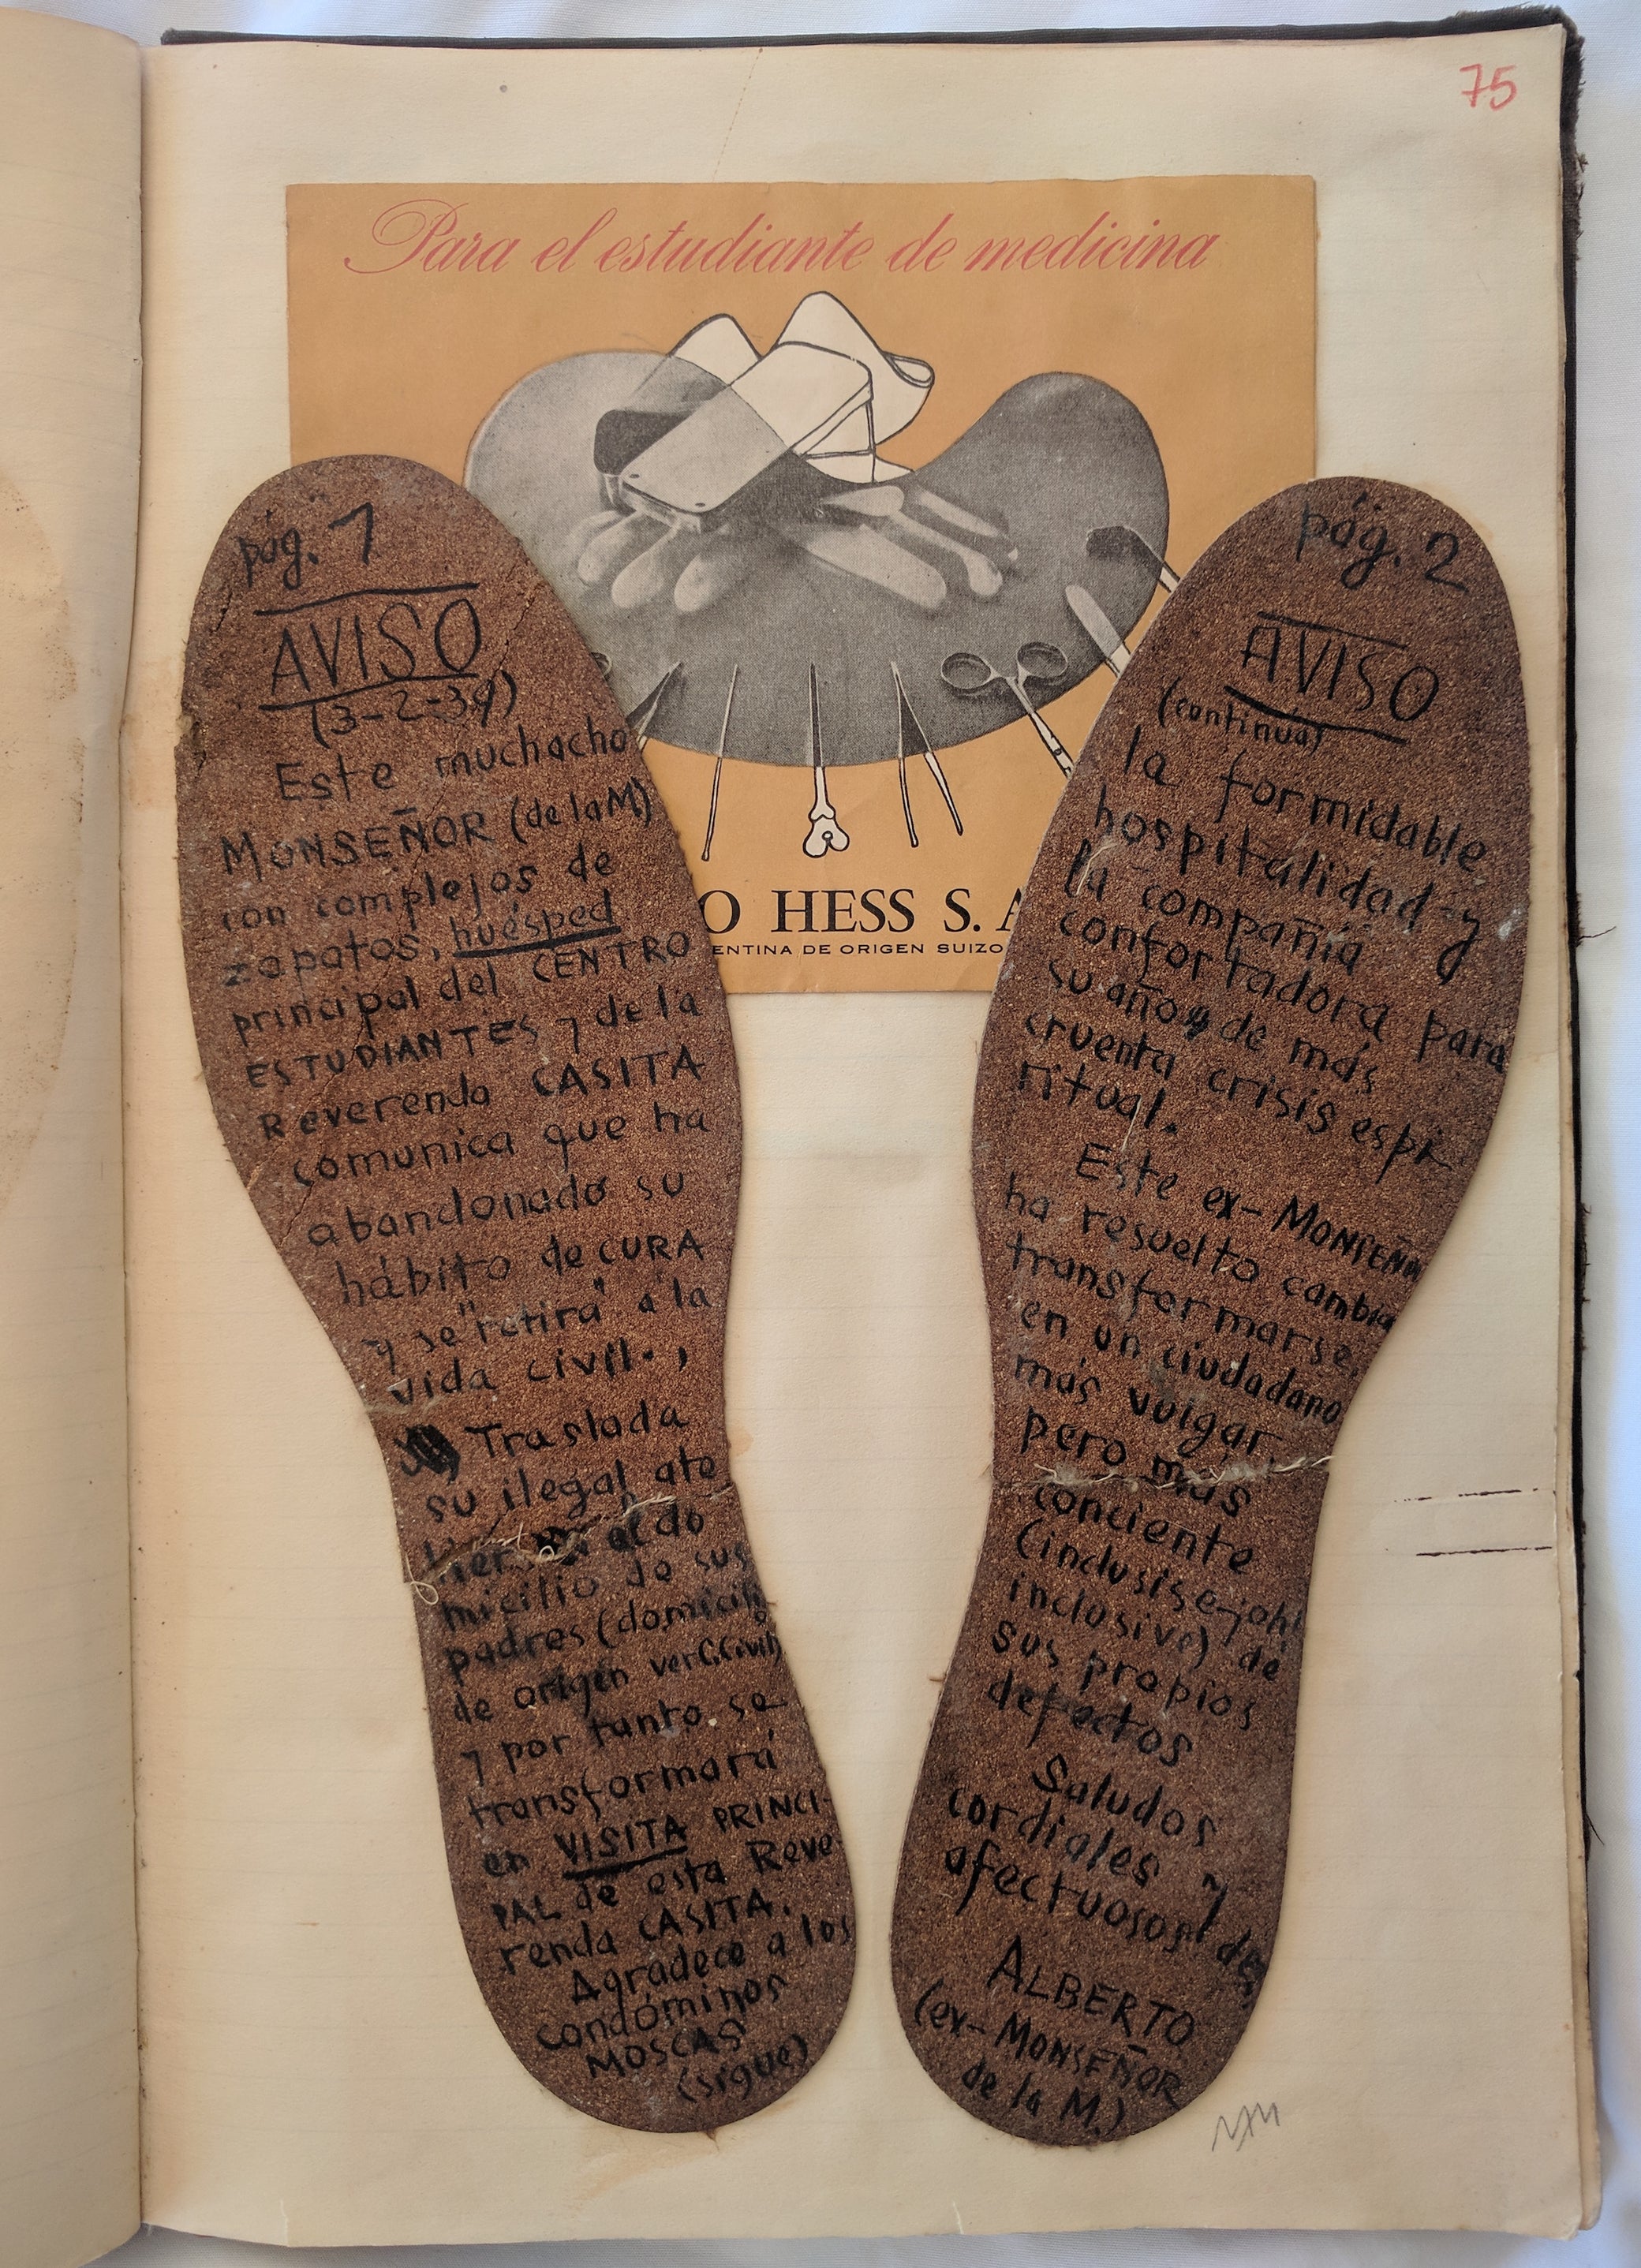 75
Para el estudiante de medicina
O HESS S. A
ENTINA DE ORIGEN SUIZO
pág. 1
AVISO
(3-2-39)
Este muchacho
MONSEÑOR (de la M)
con complejos de
zapatos, huésped
principal del CENTRO
ESTUDIANTES y de la
Reverenda CASITA
comunica que ha
abandonado su
hábito de CURA
y se "retira" a la
vida civil.,
Traslada
su ilegal ate
lier al do
micilio de sus
padres (domicilio
de origen ver C. Civil)
y por tanto se
transformará
en VISITA PRINCI-
PAL de esta Reve-
renda CASITA.
Agradece a los
condóminos
MOSCAS
(sigue)
pág. 2
AVISO
(continúa)
la formidable
hospitalidad y
la compañía
confortadora para
su año de más
cruenta crisis espi-
ritual.
Este ex-MONSEÑOR
ha resuelto cambia
transformarse
en un ciudadano
más vulgar
pero más
conciente
(inclusise-¡oh!
inclusive) de
sus propios
defectos
Saludos
cordiales y
afectuosos de
ALBERTO
(ex-MONSEÑOR
de la M.)